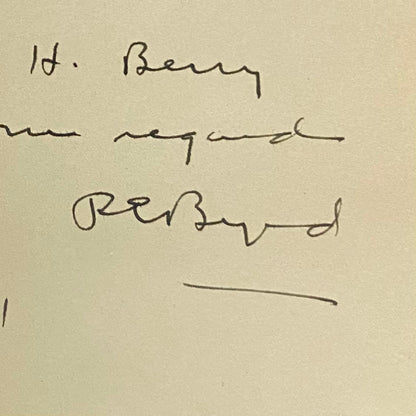 H. Berry
regards
R E Byrd